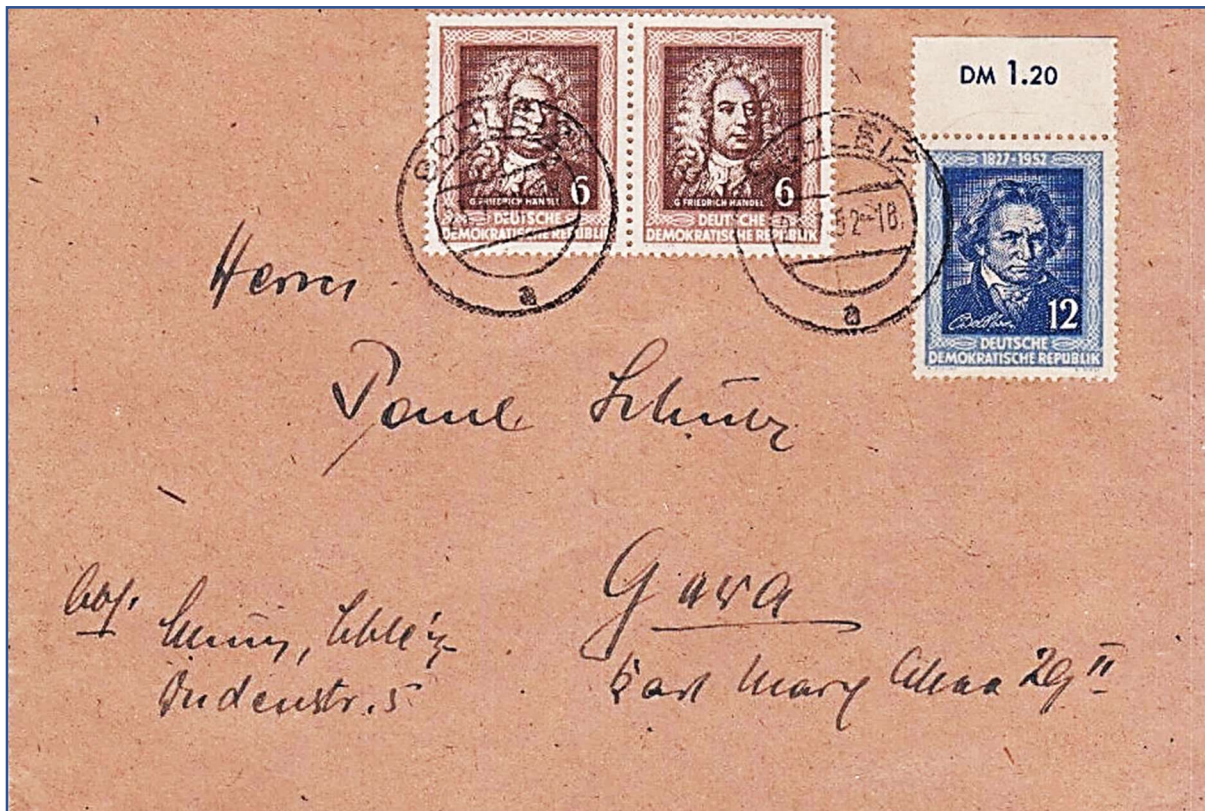 DM 1.20
6
G. FRIEDRICH HÄNDEL
DEUTSCHE
DEMOKRATISCHE REPUBLIK
6
G. FRIEDRICH HÄNDEL
DEUTSCHE
DEMOKRATISCHE REPUBLIK
1827-1952
12
DEUTSCHE
DEMOKRATISCHE REPUBLIK
SCHLEIZ
52-18
a
a
Herrn
Paul
Gera
Karl Marx Allee 29 II
Abs.
Schleiz